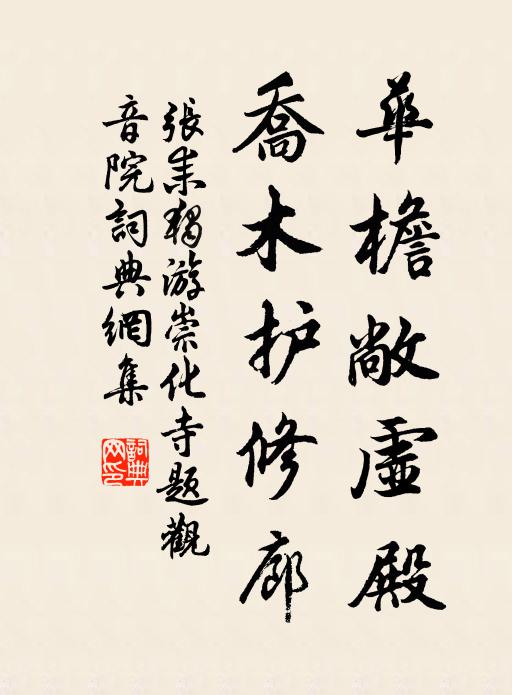 華檐敞虛殿
喬木护修廊
張耒獨游崇化寺題觀
音院詞典網集
詞典网印